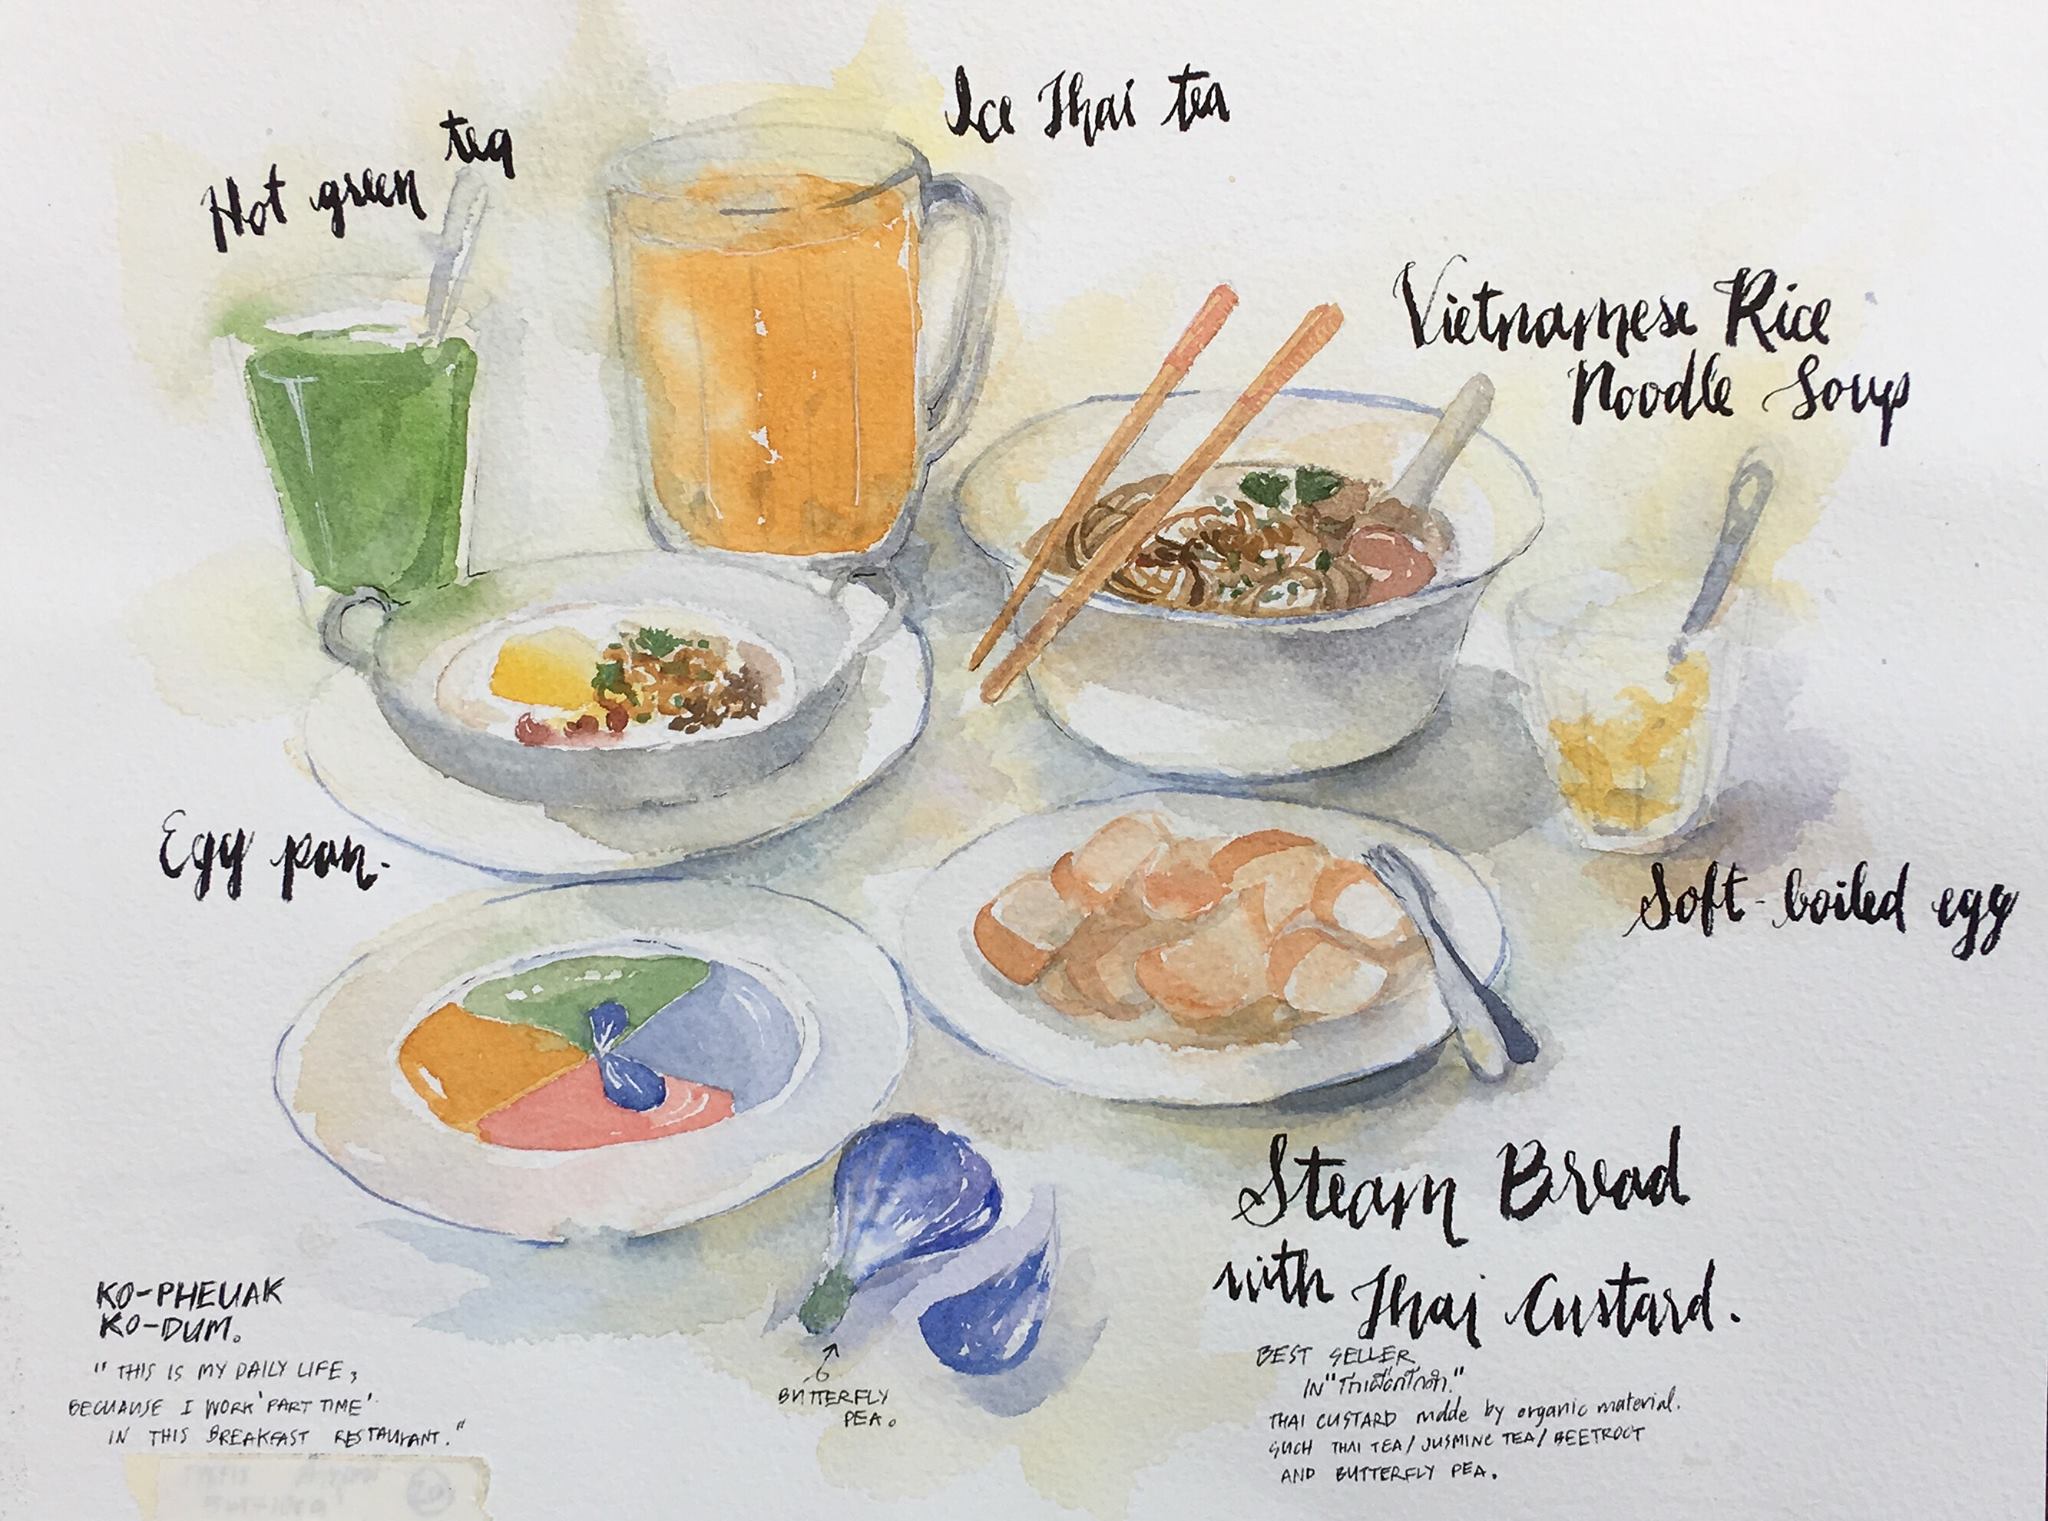 Ice Thai tea
Hot green tea
Vietnamese Rice
Noodle Soup
Egg pan.
Soft-boiled egg
Steam Bread
with Thai Custard.
KO-PHEUAK
KO-DUM.
"THIS IS MY DAILY LIFE,
BECUAUSE I WORK 'PART TIME'
IN THIS BREAKFAST RESTAURANT."
BUTTERFLY
PEA.
BEST SELLER
IN "โกเผือกโกดำ."
THAI CUSTARD made by organic material.
SUCH THAI TEA/JUSMINE TEA/BEETROOT
AND BUTTERFLY PEA.